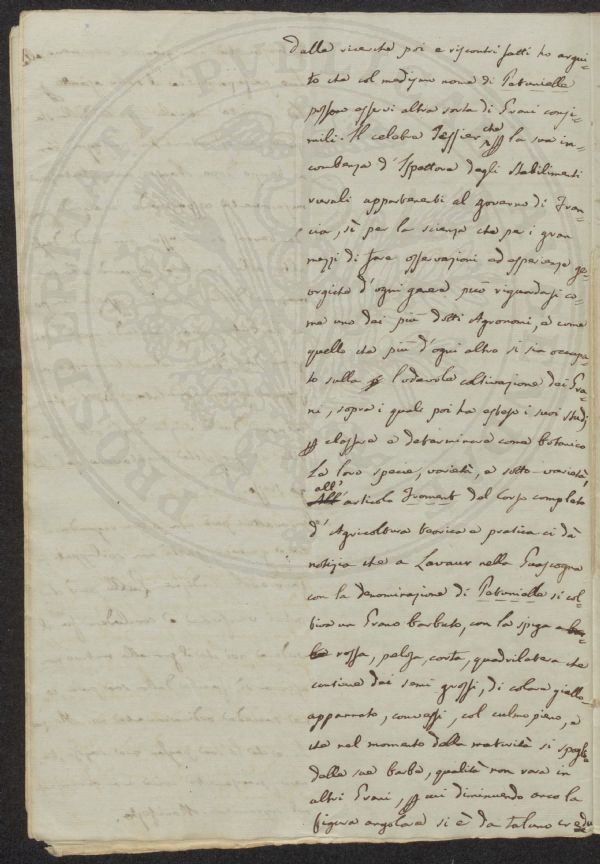 dalle ricerche poi e riscontri fatti ho argui-
to che col medesimo nome di Petanielle
possono esservi altra sorta di Grani consi-
mili. Il celebre Tessier che per la sua in-
combenza d'Ispettore degli Stabilimenti
rurali appartenenti al governo di Fran-
cia, sì per la scienza che per i gran
mezzi di fare osservazioni ed esperienze ge-
orgiche d'ogni genere può riguardarsi co-
me uno dei più dotti Agronomi, e come
quello che più d'ogni altro si sia occupa-
to sulla lodevole coltivazione dei Gra-
ni, sopra i quali poi ha estesi i suoi studj
per classare e determinare come botanico
La loro specie, varietà, e sotto-varietà
all' articolo Froment del Corso completo
d'Agricoltura teorica e pratica ci dà
notizia che a Lavaur nella Guascogna
con la denominazione di Petanielle si col-
tiva un Grano barbuto, con la spiga
rossa, pelosa, corta, quadrilatera che
contiene dei semi grossi, di colore giallo-
appannato, convessi, col culmo pieno, e
che nel momento della maturità si spoglia
delle sue barbe, qualità non rara in
altri Grani, per cui diminuendo anco la
figura angolare si è da taluno credu